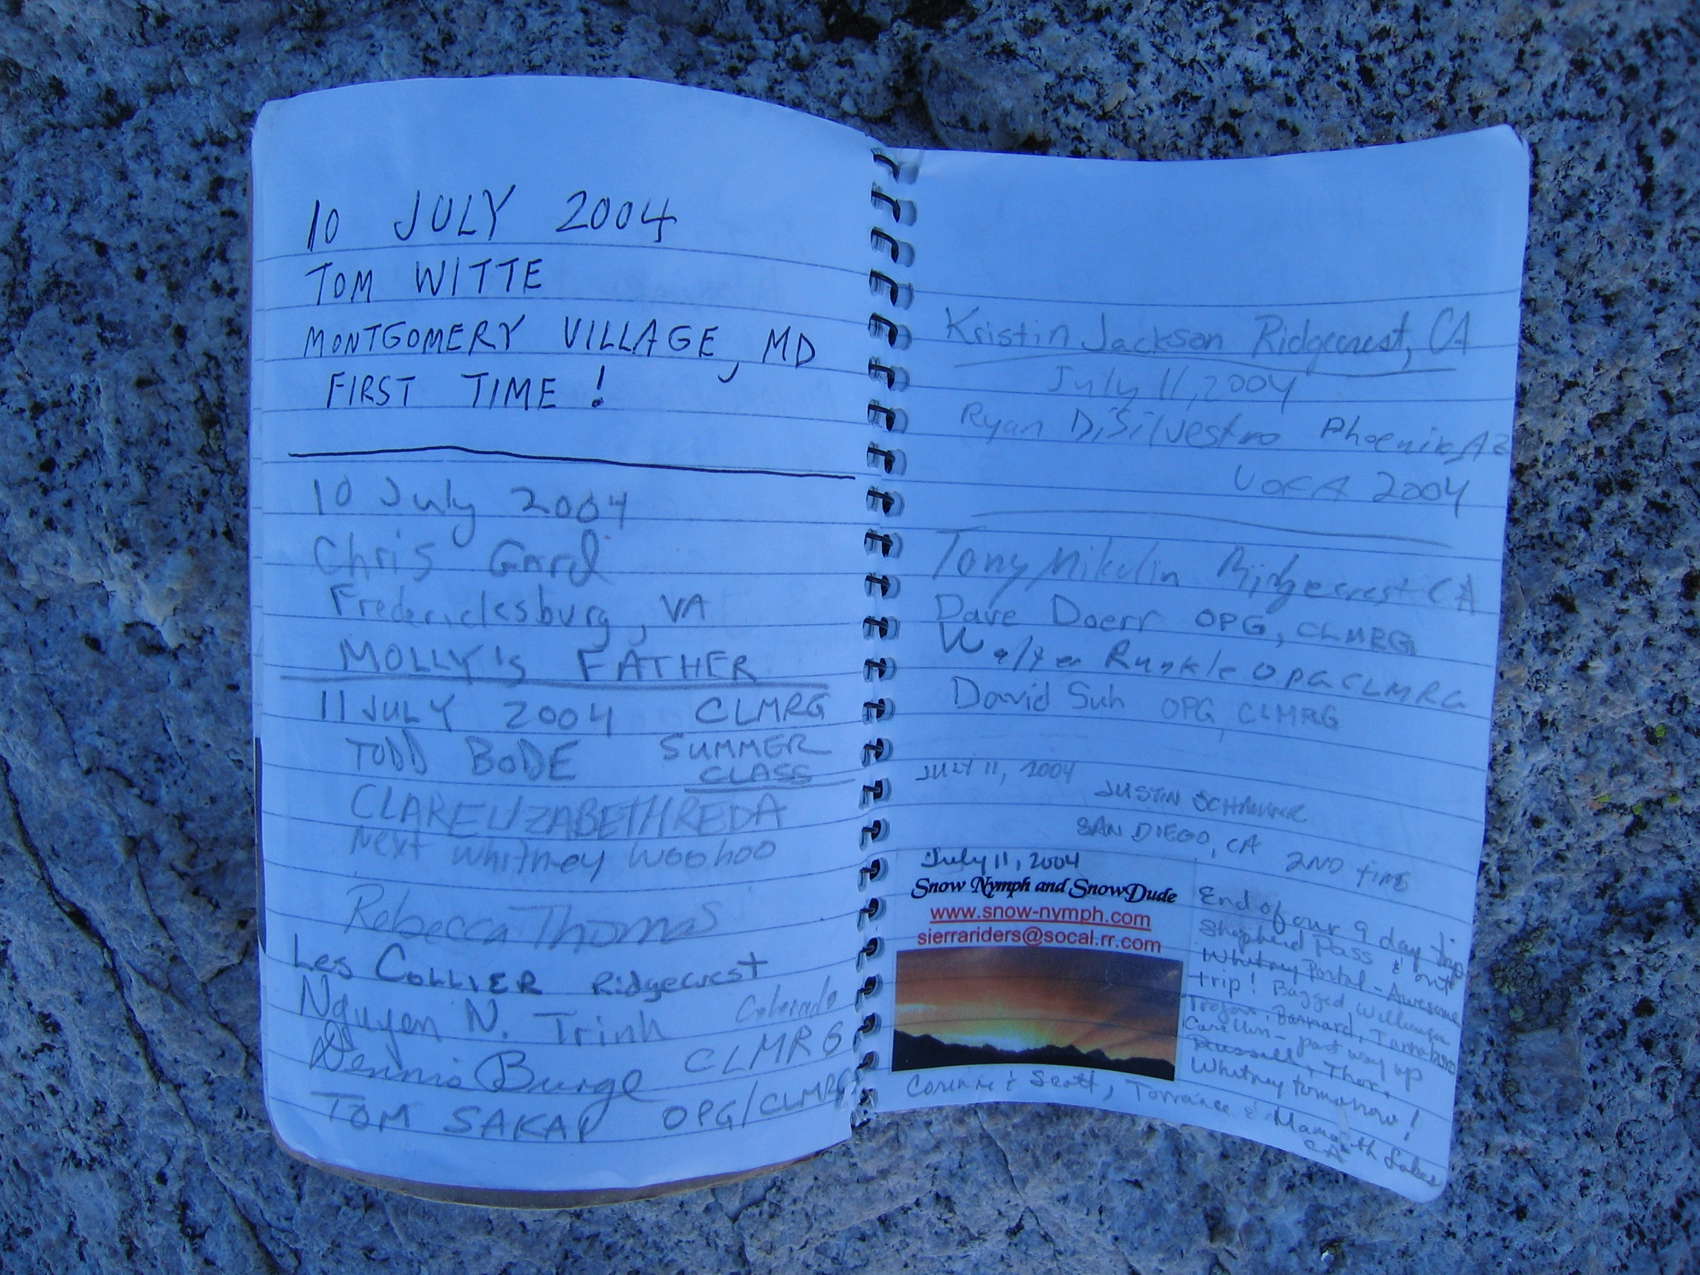 10 JULY 2004
TOM WITTE
MONTGOMERY VILLAGE, MD
FIRST TIME!
10 July 2004
Chris
Fredericksburg, VA
MOLLY'S FATHER
11 JULY 2004 CLMRG
TODD BODE SUMMER
CLASS
CLARE ELIZABETH REDA
Next Whitney Woohoo
Rebecca Thomas
Les COLLIER Ridgecrest
Nguyen N. Trinh Colorado
Dennis Burge CLMRG
TOM SAKAI OPG/CLMRG
Kristin Jackson Ridgecrest, CA
July 11, 2004
Ryan DiSilvestro Phoenix AZ
2004
Tony Mikulin Ridgecrest CA
Dave Doerr OPG, CLMRG
Walter Runkle OPG CLMRG
David Suh OPG, CLMRG
JULY 11, 2004
JUSTIN
SAN DIEGO, CA 2ND TIME
July 11, 2004
Snow Nymph and SnowDude
www.snow-nymph.com
sierrariders@socal.rr.com
End of our 9 day trip
Shepherd Pass & out
Whitney Portal - Awesome
trip! Bagged Williamson
Trojan, Barnard, Tunnabora
Carillon - part way up
Russell, Thor,
Whitney tomorrow!
Corinne & Scott, Torrance & Mammoth Lakes
CA